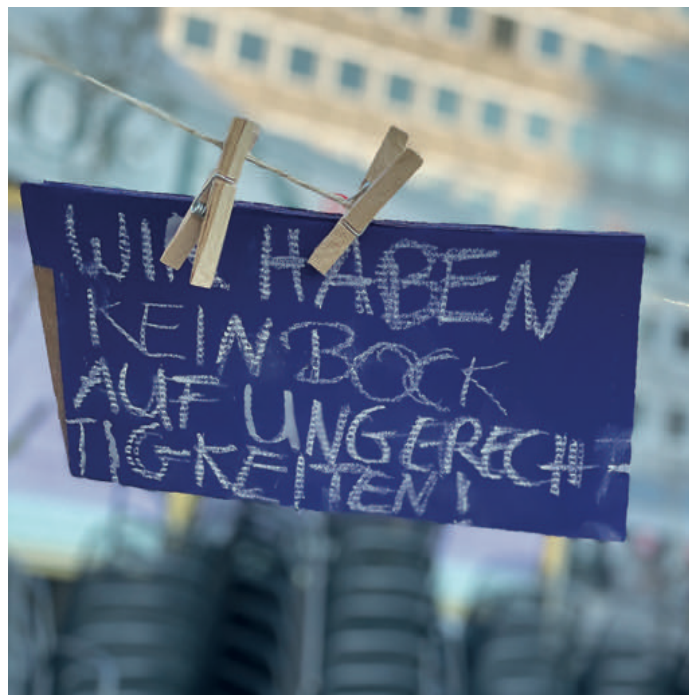 WIR HABEN
KEIN BOCK
AUF UNGERECH
TIG-KEITEN!